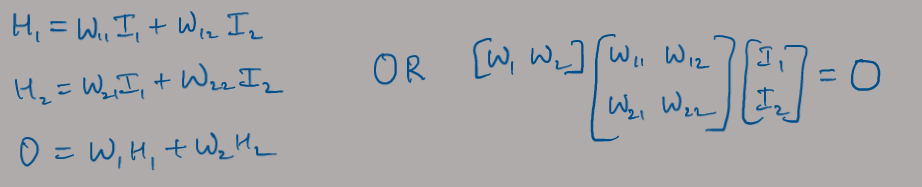 H₁ = W₁₁ I₁ + W₁₂ I₂
H₂ = W₂₁ I₁ + W₂₂ I₂
O = W₁ H₁ + W₂ H₂
OR [W₁ W₂] [W₁₁ W₁₂ ; W₂₁ W₂₂] [I₁ ; I₂] = O